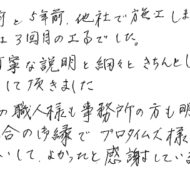 と5年前、他社で施工しま
3回目の工事でした。
寧な説明と細々ときちんとし
して頂きました
の職人様も事務所の方も明
合の御縁でプロタイムズ様
いして、よかったと感謝している